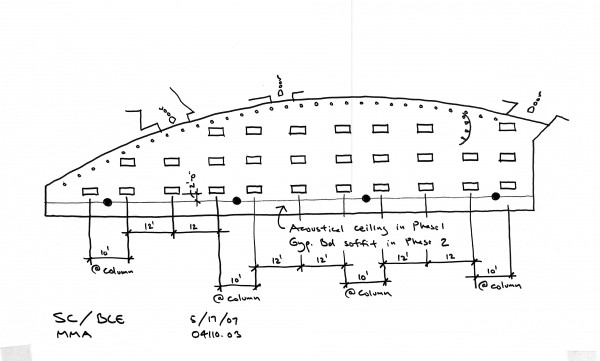 Door
Door
Door
2'-0
Acoustical ceiling in Phase 1
Gyp. Bd soffit in Phase 2
12'
12
10'
@ column
12'
12'
10'
@ column
12'
12
10'
@ column
10'
@ column
SC/BCE
5/17/07
MMA
04110.03